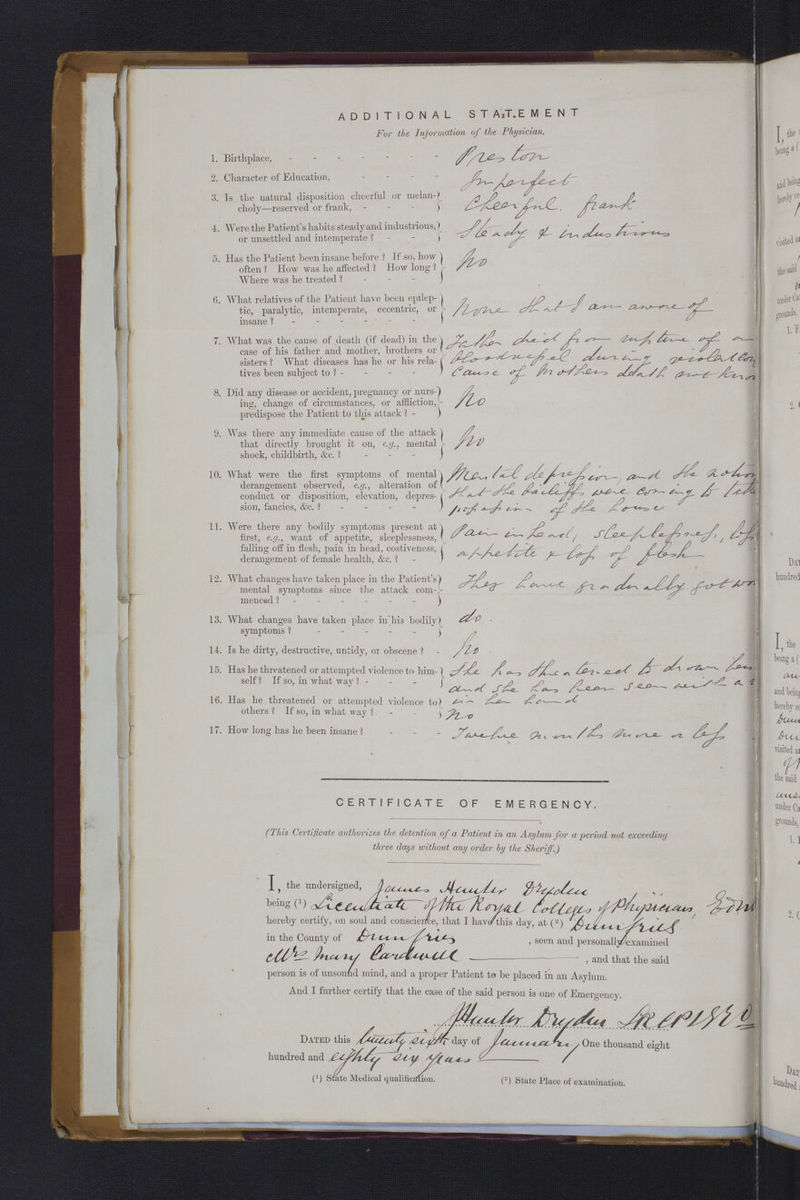 ADDITIONAL STATEMENT
For the Information of the Physician.
1. Birthplace, - - - - - - - Preston
2. Character of Education, - - - - Imperfect
3. Is the natural disposition cheerful or melan-
choly—reserved or frank, - - - Cheerful. frank
4. Were the Patient's habits steady and industrious,
or unsettled and intemperate? - - Steady & industrious
5. Has the Patient been insane before? If so, how
often? How was he affected? How long?
Where was he treated? - - - No
6. What relatives of the Patient have been epilep-
tic, paralytic, intemperate, eccentric, or
insane? - - - - - - None that I am aware of
7. What was the cause of death (if dead) in the
case of his father and mother, brothers or
sisters? What diseases has he or his rela-
tives been subject to? - - - -
Father died from rupture of a
bloodvessel during
Cause of Mothers death not
8. Did any disease or accident, pregnancy or nurs-
ing, change of circumstances, or affliction,
predispose the Patient to this attack? - No
9. Was there any immediate cause of the attack
that directly brought it on, e.g., mental
shock, childbirth, &c.? - - - No
10. What were the first symptoms of mental
derangement observed, e.g., alteration of
conduct or disposition, elevation, depres-
sion, fancies, &c.? - - - -
Mental depression, and the notion
that the bailiffs were coming to take
possession of the house
11. Were there any bodily symptoms present at
first, e.g., want of appetite, sleeplessness,
falling off in flesh, pain in head, costiveness,
derangement of female health, &c.? -
Pain in head, sleeplessness, loss
appetite & loss of flesh
12. What changes have taken place in the Patient's
mental symptoms since the attack com-
menced? - - - - - -
They have gradually got
13. What changes have taken place in his bodily
symptoms? - - - - - do.
14. Is he dirty, destructive, untidy, or obscene? - No
15. Has he threatened or attempted violence to him-
self? If so, in what way? - - -
She has threatened to drown
and she has been seen with a
in her hand
16. Has he threatened or attempted violence to
others? If so, in what way? - - No
17. How long has he been insane? - - - Twelve months more or less
CERTIFICATE OF EMERGENCY.
(This Certificate authorizes the detention of a Patient in an Asylum for a period not exceeding
three days without any order by the Sheriff.)
I, the undersigned, James Hunter Dryden
being (1) Licentiate of the Royal College of Physicians,
hereby certify, on soul and conscience, that I have this day, at (2) Dumfries
in the County of Dumfries, seen and personally examined
Mrs Mary Cardwell, and that the said
person is of unsound mind, and a proper Patient to be placed in an Asylum.
And I further certify that the case of the said person is one of Emergency.
JHunter Dryden
DATED this twenty sixth day of January, One thousand eight
hundred and eighty six years
(1) State Medical qualification. (2) State Place of examination.
I, the
being a (
said being
hereby ce
visited a
the said
under Ca
grounds,
1. F
2. (
DAT
hundred
I, the
being a (
and being
hereby ce
visited at
the said
under Ca
grounds,
1.
2. (
DAT
hundred